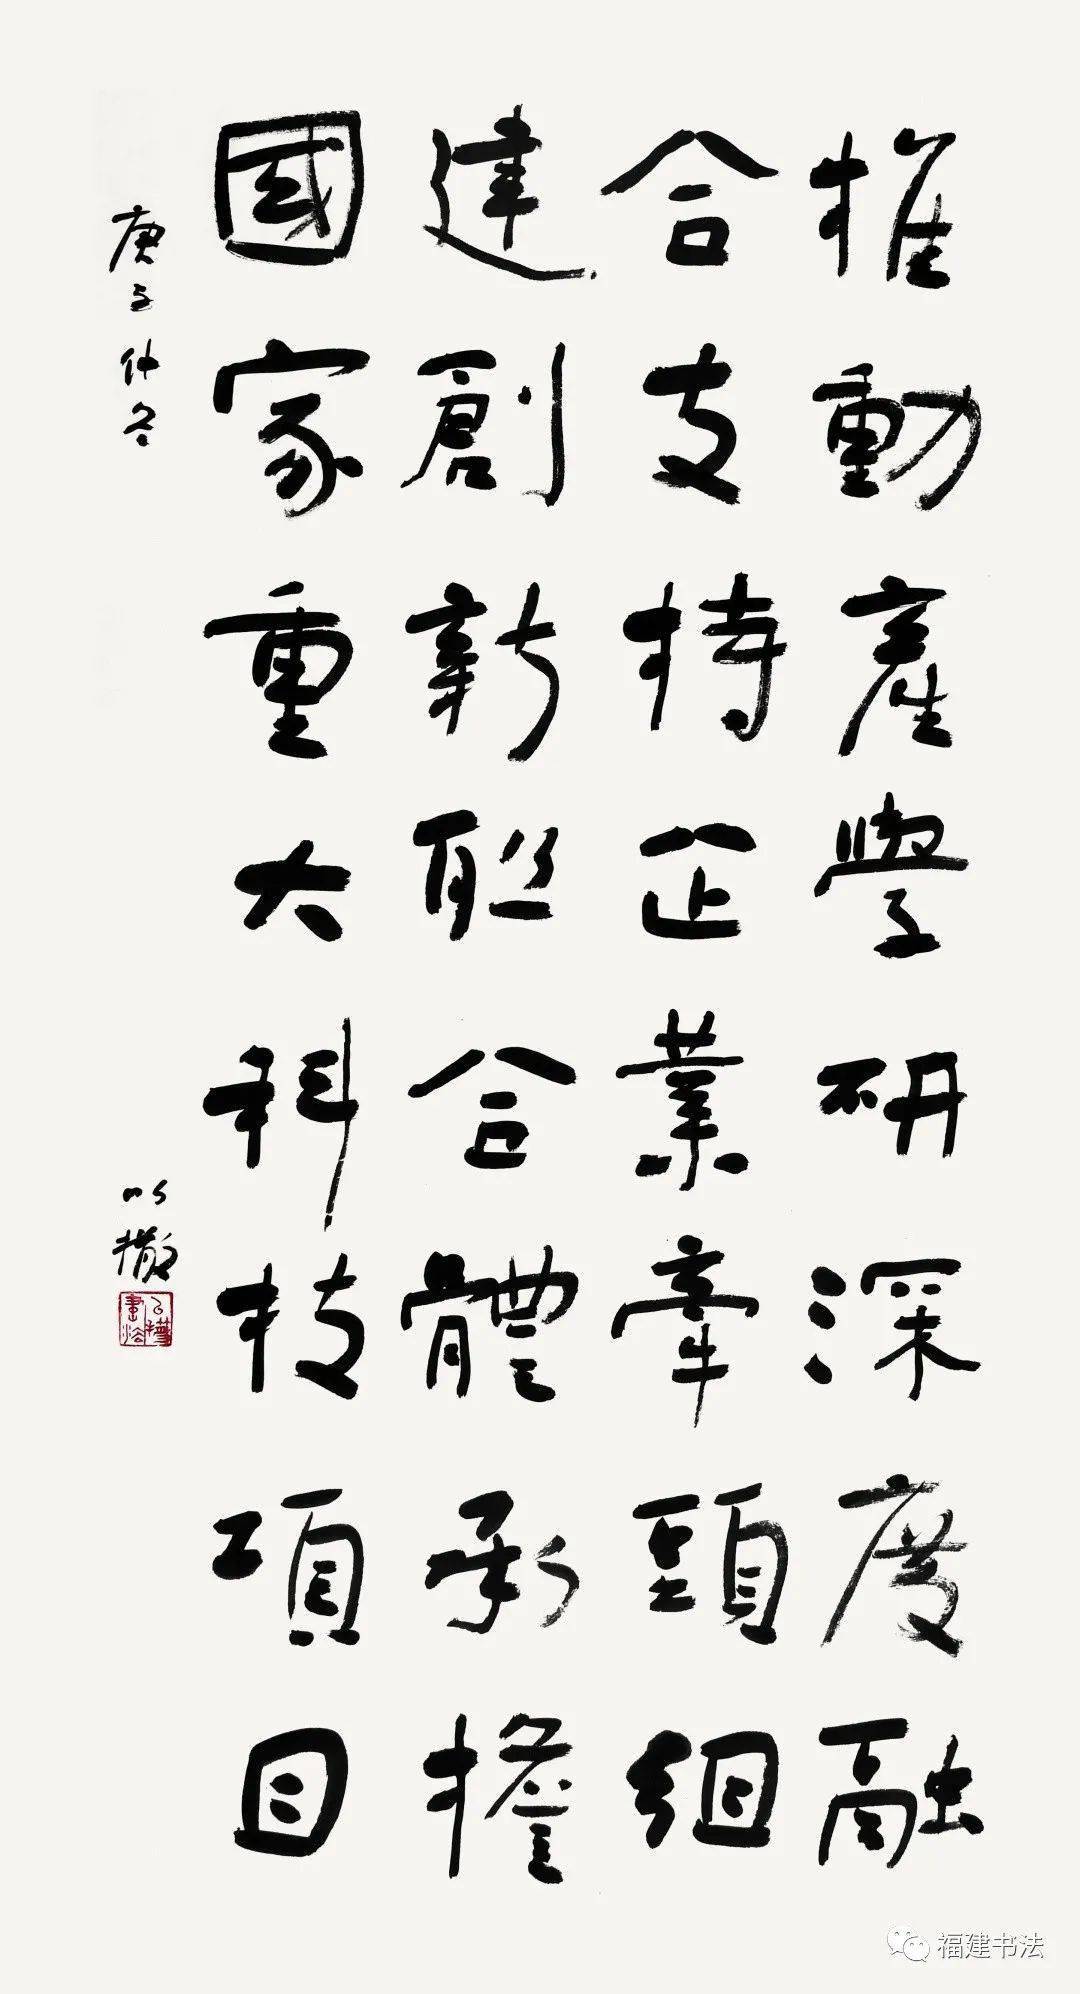 推動產學研深度融
合支持企業牽頭組
建創新联合體承擔
國家重大科技項目
庚子仲冬
以撒
福建书法